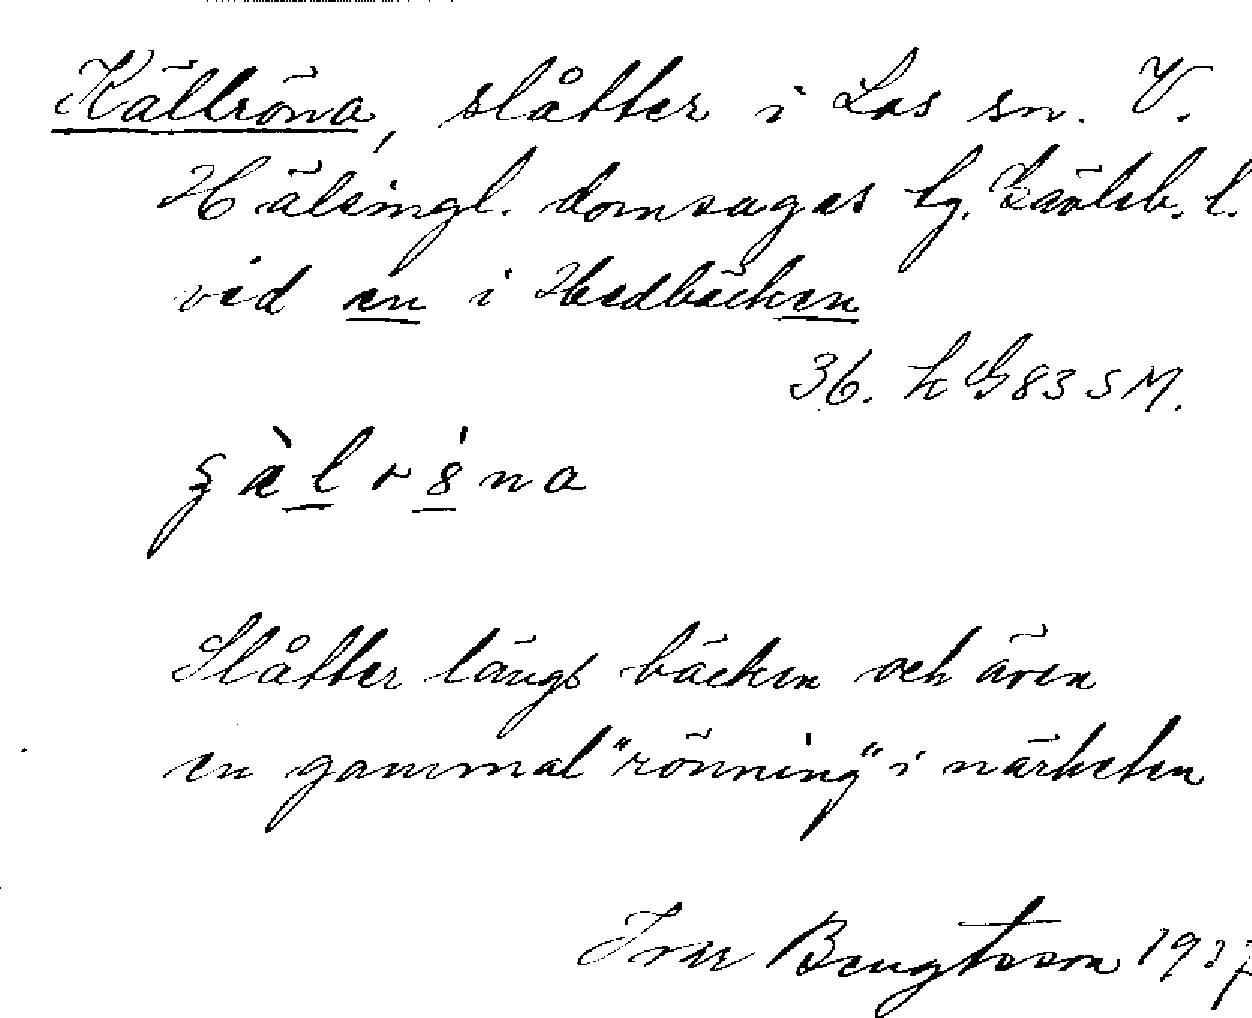 Källröna, slåtter i Los sn. V.
Hälsingl. domsagas tg. Gävleb. l.
vid en i Hedbäcken
36. h G 83 S M.
slåtter längs bäcken och även
en gammal "rönning" i närheten
Iver Bengtsson 1937